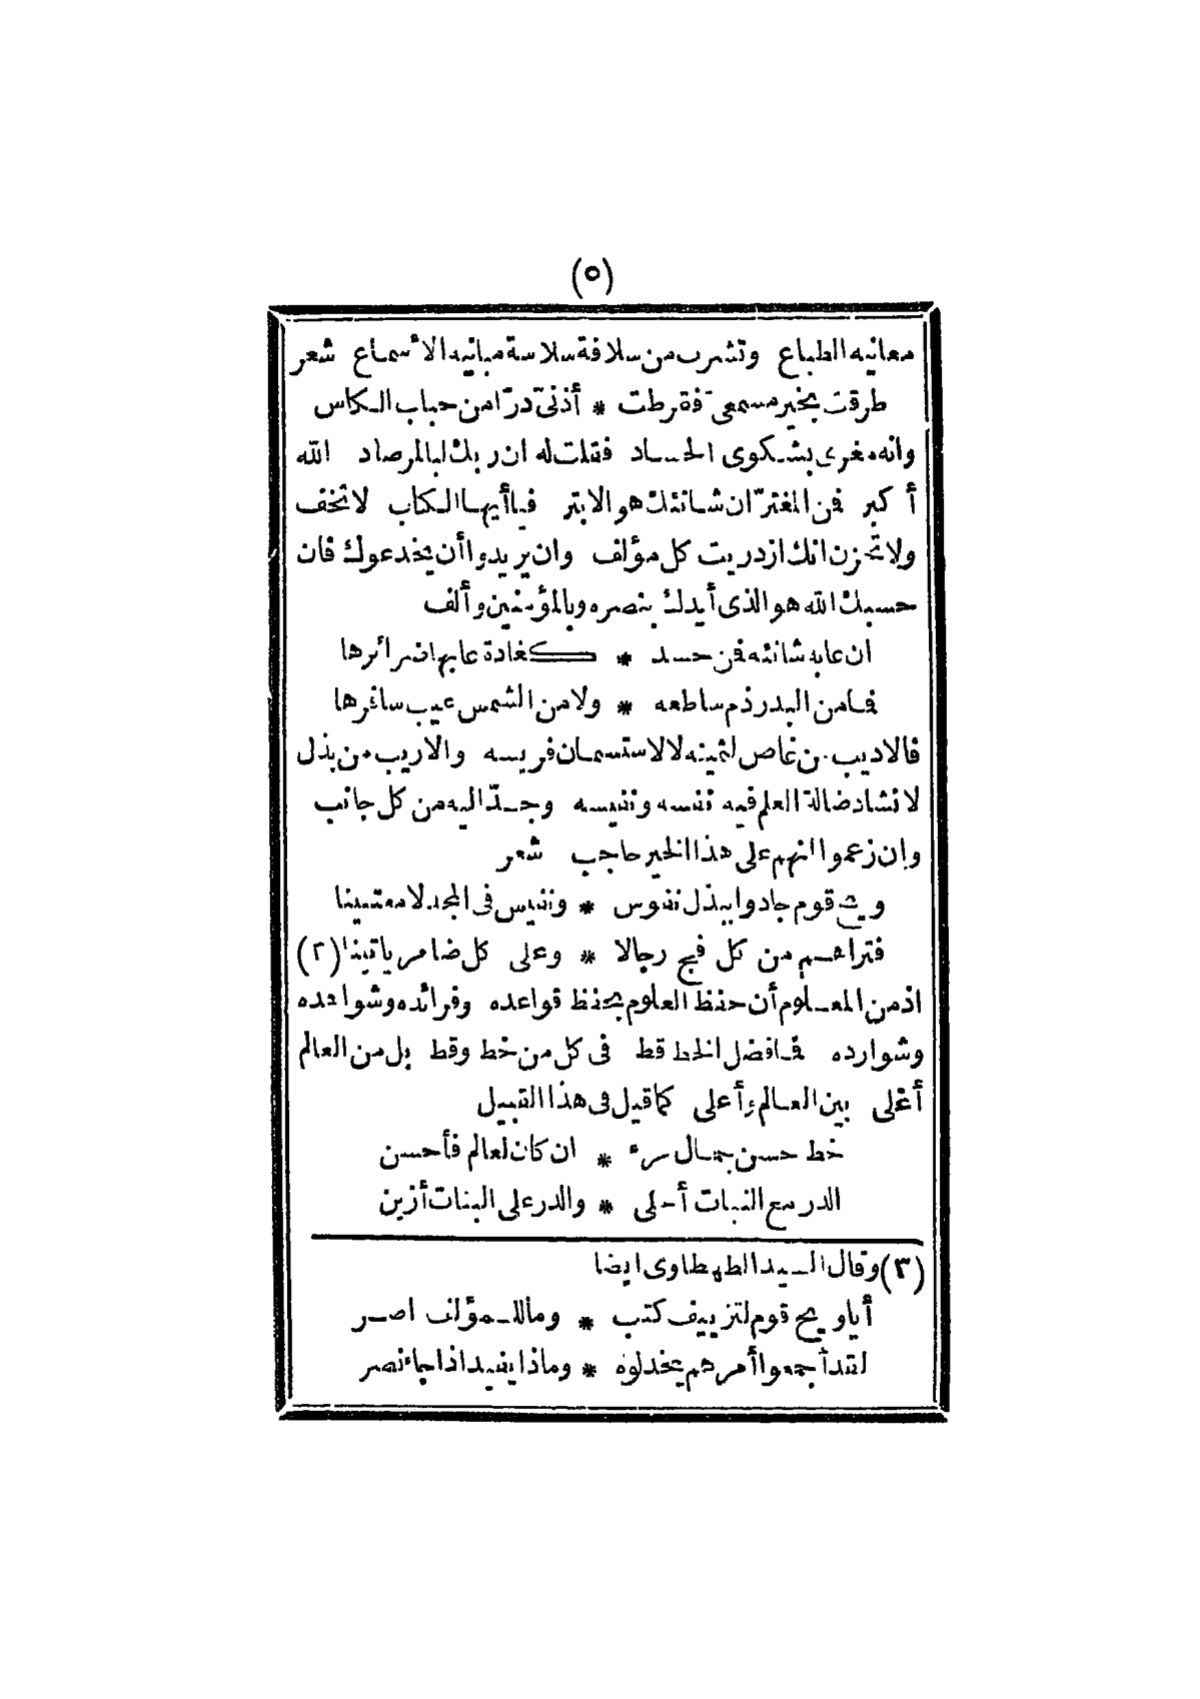 (٥)
معانيه الطباع وتشرب من سلافة سلاسة مبانيه الأسماع شعر
طرقت بخير مسمعيّ فقرطت * أذنىّ درّا من حباب الكاس
وانه مغرى بشكوى الحساد فقلت له ان ربك لبالمرصاد الله
أكبر فمن المغترّ ان شانئك هو الابتر فيا أيها الكتاب لا تخف
ولا تحزن انك ازدريت كل مؤلف وان يريدوا أن يخدعوك فان
حسبك الله هو الذى أيدك بنصره وبالمؤمنين وألف
ان عابه شانئه فمن حسد * كغادة عابها ضرائرها
فما من البدر ذم ساطعه * ولا من الشمس عيب سافرها
فالاديب من غاص لثمينه لا لاستسمان فريسه والاريب من بذل
لانشاد ضالة العلم فيه نفسه ونفيسه وجدّ اليه من كل جانب
وان زعموا انهم على هذا الخير حاجب شعر
ويح قوم جادوا ببذل نفوس * ونفيس فى المجد لا معتبينا
فتراهم من كل فج رجالا * وعلى كل ضامر ياتينا (٢)
اذ من المعلوم أن حفظ العلوم بحفظ قواعده وفرائده وشواهده
وشوارده فما فضل الخط قط فى كل من خط وقط بل من العالم
أغلى بين العالم وأعلى كما قيل فى هذا القبيل
خط حسن جمال مرء * ان كان لعالم فأحسن
الدر مع النبات أحلى * والدر على البنات أزين
(٣) وقال السيد الطهطاوى ايضا
أيا ويح قوم لتزييف كتب * وما للمؤلف اصر
لقد أجمعوا أمرهم يخذلوه * وماذا يفيد اذا جاء نصر